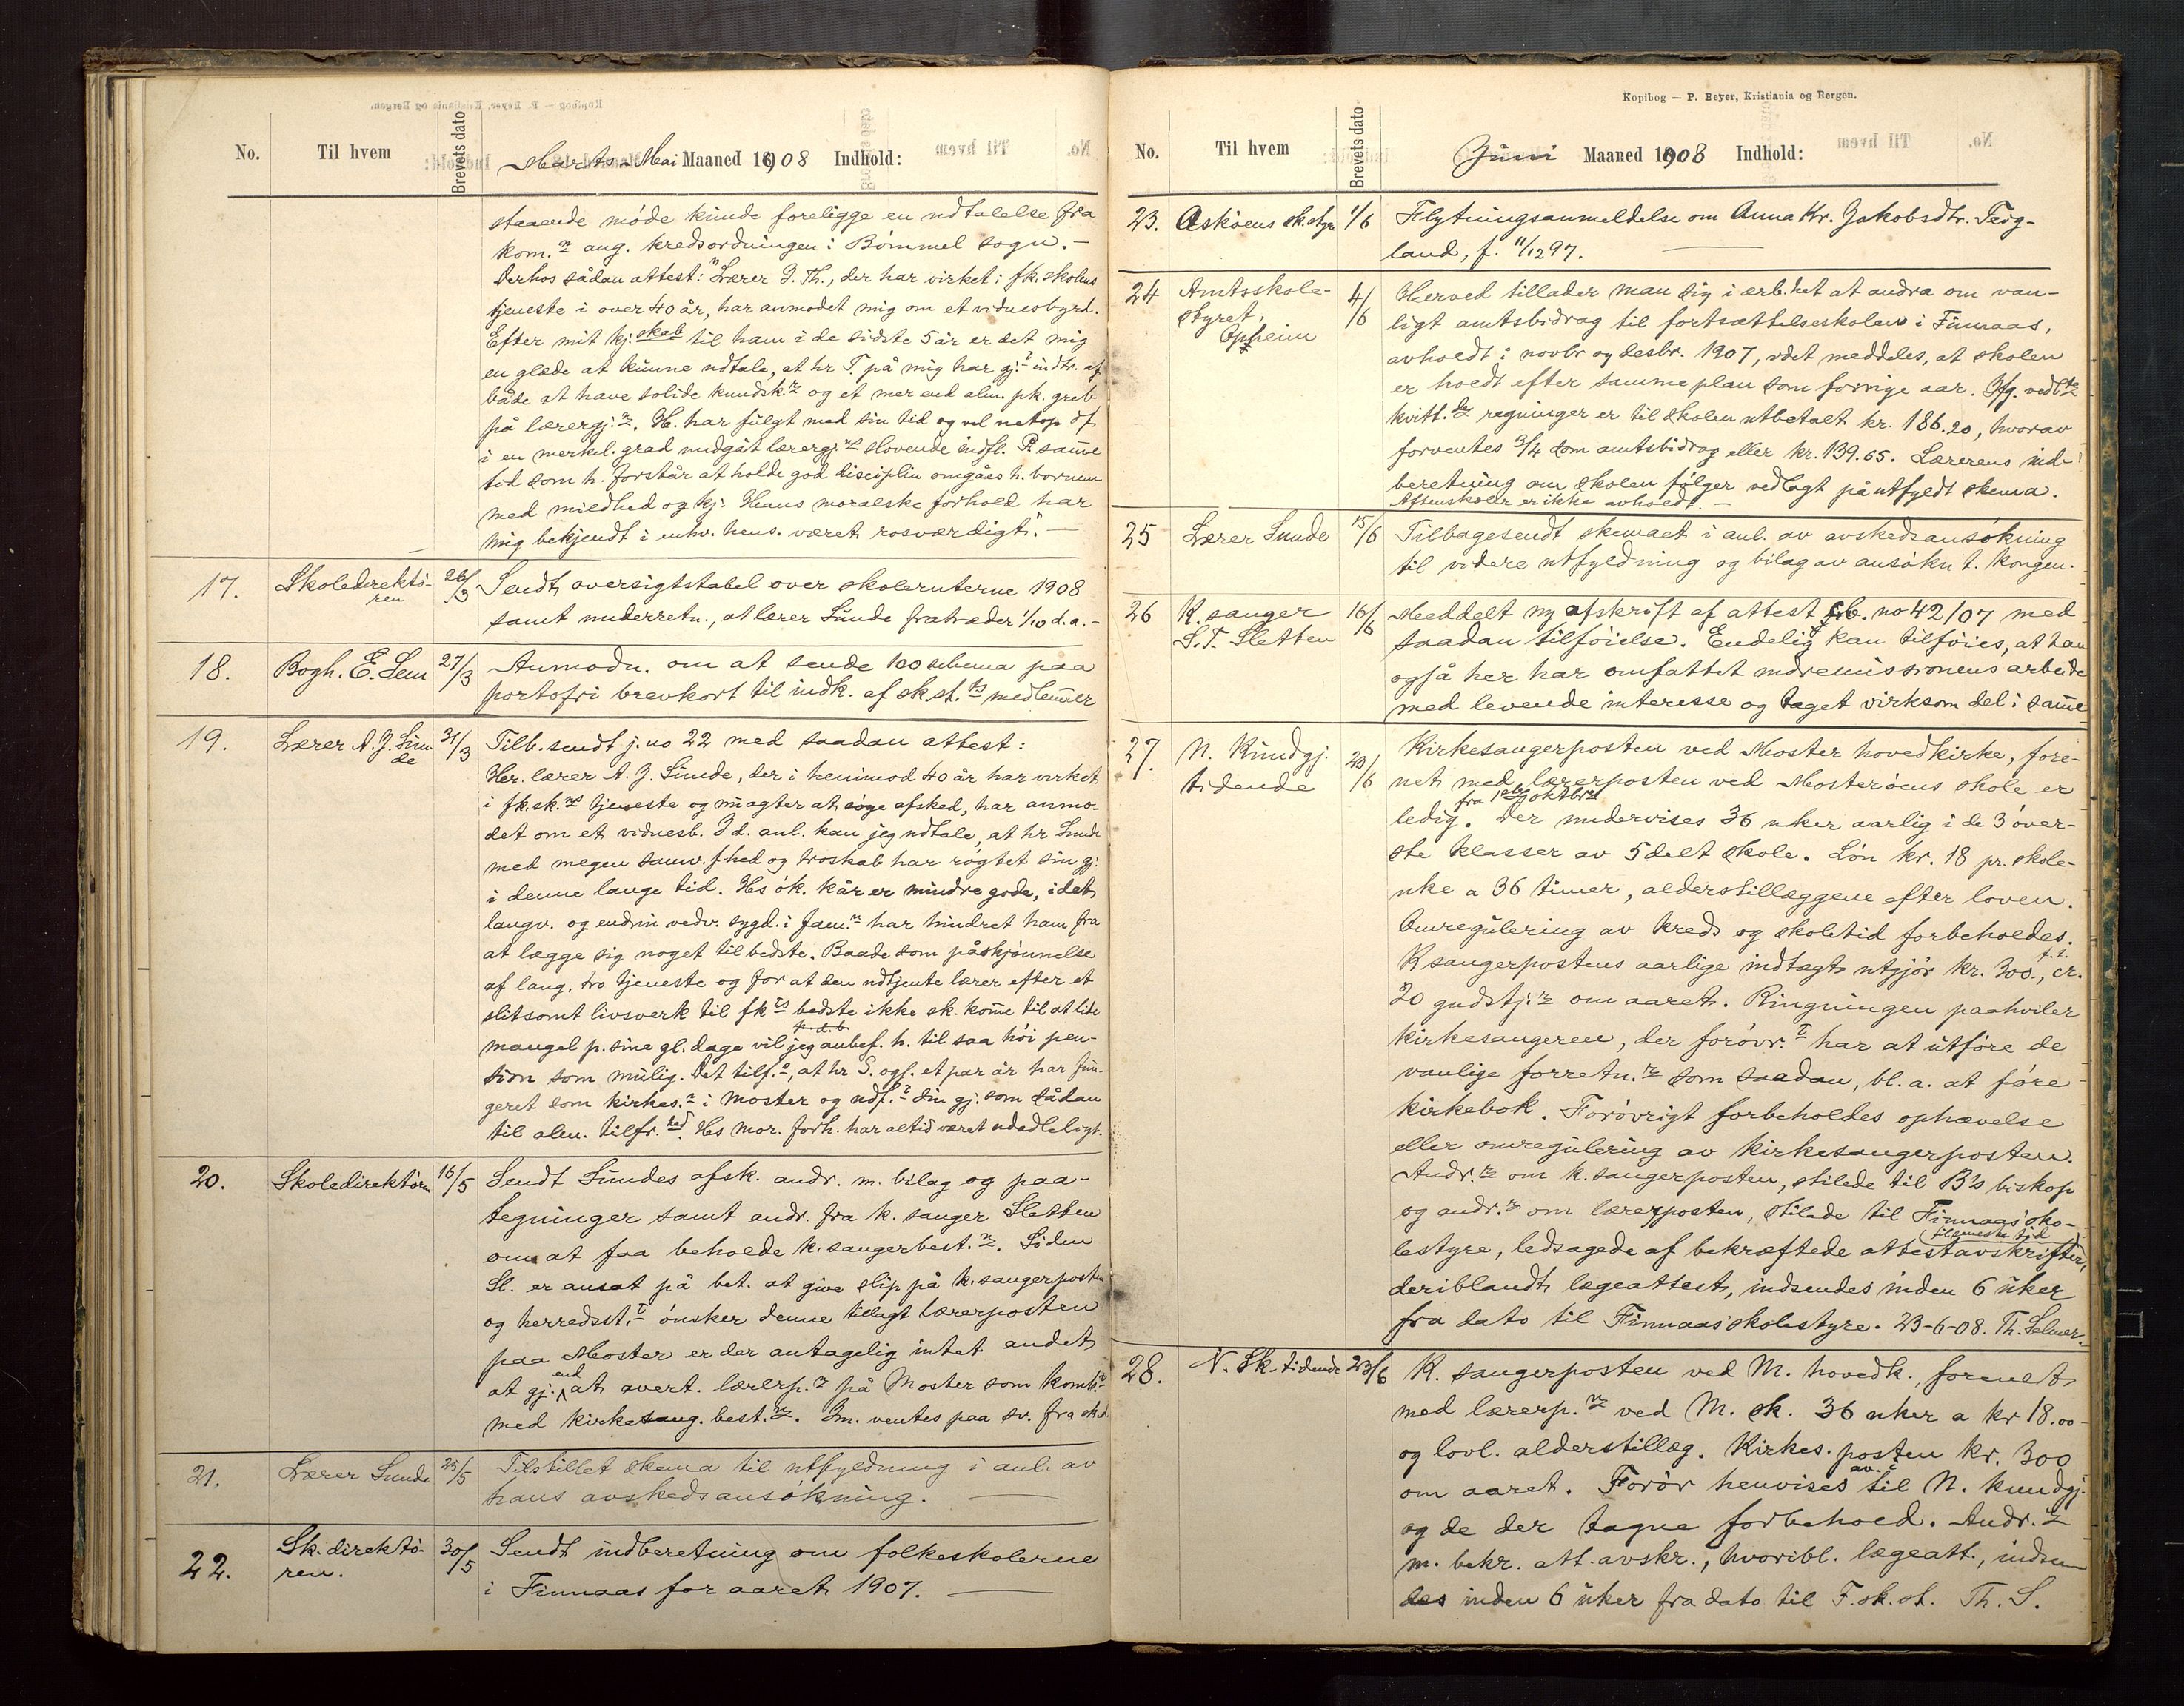 No. Til hvem Brevets dato Marts-Mai Maaned 1908 Indhold:
staaende møde kunde foreligge en udtalelse fra
kom.n ang. kredsordningen i Bømmel sogn. -
Derhos sådan attest: "Lærer J. Th., der har virket i fk. skolens
tjeneste i over 40 år, har anmodet mig om et vidnesbyrd.
Efter mit kj.skab til ham i de sidste 5 år er det mig
en glæde at kunne udtale, at hr T. på mig har gj.t indtr. af
både at have solide kundsk.r og et mer end alm. pk. greb
på lærergj.n. H. har fulgt med sin tid og vel netop df
i en merkel. grad undgåt lærergj.ns sløvende indfl. P. samme
tid som h. forstår at holde god disciplin omgåes h. børnene
med mildhed og kj. Hans moralske forhold har
mig bekjendt i enhv. hens. været rosværdigt". -
17. Skoledirektø-
ren 26/3 Sendt oversigtstabel over skoleruterne 1908
samt underretn., at lærer Sunde fratræder 1/10 d.a. -
18. Bogh. E. Sem 27/3 Anmodn. om at sende 100 schema paa
portofri brevkort til indk. af sk.st.ts medlemmer
19. Lærer A. J. Sun-
de 31/3 Tilb.sendt j. no 22 med saadan attest:
Hr. lærer A. J. Sunde, der i henimod 40 år har virket
i fk.sk.ns tjeneste og nu agter at søge afsked, har anmo-
det om et vidnesb. I d. anl. kan jeg udtale, at hr Sunde
med megen samv.f.hed og troskab har røgtet sin gj.
i denne lange tid. Hs øk. kår er mindre gode, idet
langv. og endnu vedv. sygd. i fam.n har hindret ham fra
at lægge sig noget tilbedste. Baade som påskjønnelse
af lang, tro tjeneste og for at den udtjente lærer efter et
slitsomt livsverk til fk.ts bedste ikke sk. komme til at lide
mangel p. sine gl. dage vil jeg anbef. h. til saa høi pen-
sion som mulig. Det tilf.s, at hr S. ogs. et par år har fun-
geret som kirkes.r i Moster og udf.t sin gj. som sådan
til alm. tilfr.hed. Hs mor. forh. har altid været udadleligt.
20. Skoledirektøren 16/5 Sendt Sundes afsk. andr. m. bilag og paa-
tegninger samt andr. fra k. sanger Sletten
om at faa beholde k.sangerbest.n. Siden
Sl. er ansat på bet. at give slip på k.sangerposten
og herredsst.t ønsker denne tillagt lærerposten
paa Moster er der antagelig intet andet
at gj. end at avert. lærerp.n på Moster som komb.t
med kirkesang. best.n. Im. ventes paa sv. fra sk.d.
21. Lærer Sunde 25/5 Tilstillet skema til utfyldning i anl. av
hans avskedsansøkning.
22. Sk. direktø-
ren. 30/5 Sendt indberetning om folkeskolerne
i Finnaas for aaret 1907.
Kopibog — P. Beyer, Kristiania og Bergen.
No. Til hvem Brevets dato Juni Maaned 1908 Indhold:
23. Askøens sk.styre 1/6 Flytningsanmeldelse om Anna Kr. Jakobsdtr. Teig-
land, f. 11/12 97.
24 Amtsskole-
styret,
Opheim 4/6 Herved tillader man sig i ærb.het at andra om van-
ligt amtsbidrag til fortsættelseskolen i Finnaas,
avholdt i novbr og desbr. 1907, idet meddeles, at skolen
er holdt efter samme plan som forrige aar. Ifg. vedl.te
kvitt.te regninger er til skolen utbetalt kr. 186.20, hvorav
forventes 3/4 som amtsbidrag eller kr. 139.65. Lærerens ind-
beretning om skolen følger vedlagt på utfyldt skema.
Aftenskoler er ikke avholdt. -
25 Lærer Sunde 15/6 Tilbagesendt skemaet i anl. av avskedsansøkning
til videre utfyldning og bilag av ansøkn t. Kongen.
26 K. sanger
S. T. Sletten 16/6 Meddelt ny afskrift af attest no 42/07 med
saadan tilføielse. Endelig kan tilføies, at han
også her har omfattet indremissionens arbeide
med levende interesse og taget virksom del i samme
27. N. Kundgj.
tidende 23/6 Kirkesangerposten ved Moster hovedkirke, fore-
net med lærerposten ved Mosterøens skole er
fra 1ste oktbr
ledig. Der undervises 36 uker aarlig i de 3 øver-
ste klasser av 5 delt skole. Løn kr. 18 pr. skole-
uke a 36 timer, alderstillæggene efter loven.
Omregulering av kreds og skoletid forbeholdes.
K sangerpostens aarlige indtægt utgjør kr. 300, cr.
20 gudstj.r om aaret. Ringningen paahviler
kirkesangeren, der forøvr.t har at utføre de
vanlige forretn.r som saadan, bl. a. at føre
kirkebok. Forøvrigt forbeholdes ophævelse
eller omregulering av kirkesangerposten.
Andr.r om k. sangerposten, stilede til B's biskop
og andr.r om lærerposten, stilede til Finnaas sko-
lestyre, ledsagede af bekræftede attestavskrifter,
deriblandt lægeattest, indsendes inden 6 uker
fra dato til Finnaas skolestyre. 23-6-08. Th. Selmer.
28. N. Sk.-tidende 23/6 K. sangerposten ved M. hovedk., forenet
med lærerp.n ved M. sk. 36 uker a kr 18.00
og lovl. alderstillæg. Kirkes. posten kr. 300
om aaret. Forøv henvises til N. kundgj.
og de der tagne forbehold. Andr.r
m. bekr. att. avskr., hvoribl. lægeatt., indsen
des inden 6 uker fra dato til F. sk. st. Th. S.